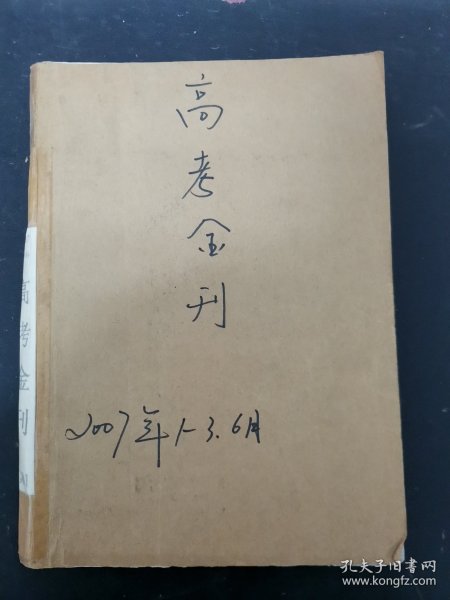 高考金刊
2007年1-3.6月
高考金刊
孔夫子旧书网
www.kongfz.com